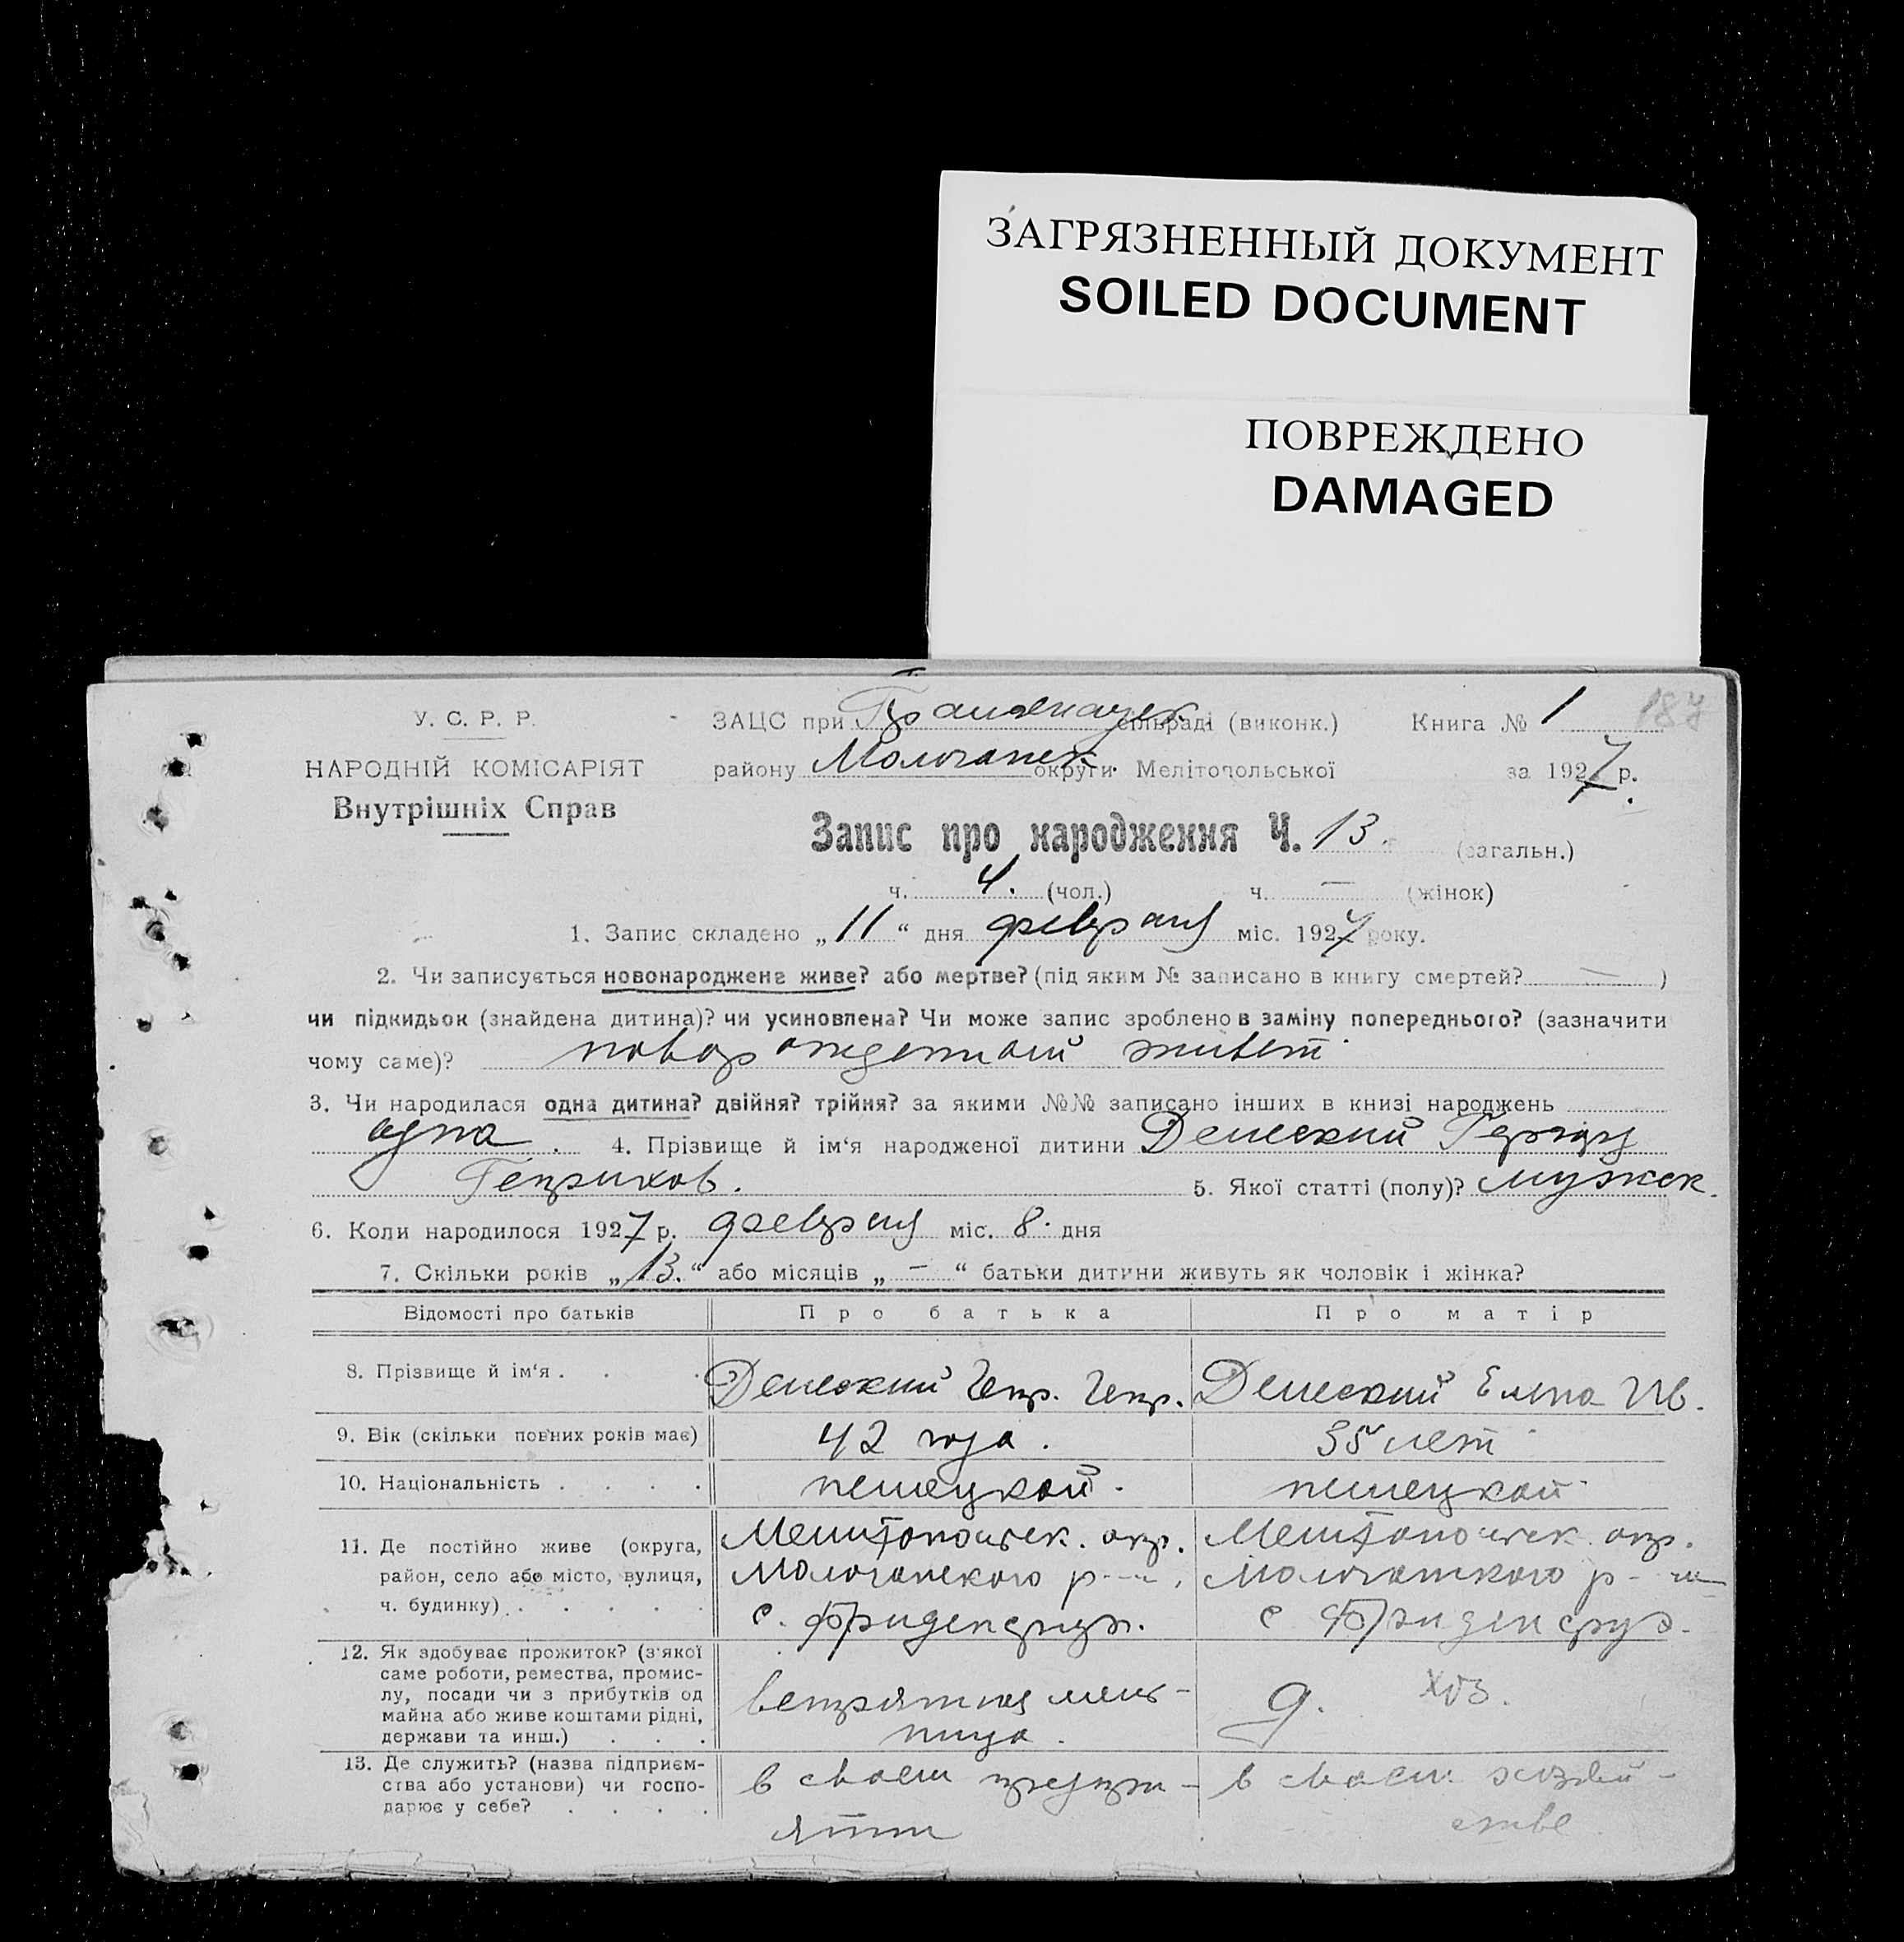 ЗАГРЯЗНЕННЫЙ ДОКУМЕНТ
SOILED DOCUMENT
ПОВРЕЖДЕНО
DAMAGED
У. С. Р. Р.
НАРОДНІЙ КОМІСАРІЯТ
Внутрішніх Справ
ЗАЦС при сільраді (виконк.) Книга № 1 187
району Молочанск. округи Мелітопольської за 1927 р.
Запис про народження Ч. 13. (загальн.)
ч. 4. (чол.) ч. — (жінок)
1. Запис складено „11“ дня февраля міс. 1927 року.
2. Чи записується новонароджене живе? або мертве? (під яким № записано в книгу смертей? — )
чи підкидьок (знайдена дитина)? чи усиновлена? Чи може запис зроблено в заміну попереднього? (зазначити
чому саме)? новорожденный живет.
3. Чи народилася одна дитина? двійня? трійня? за якими №№ записано інших в книзі народжень
одна. 4. Прізвище й ім‘я народженої дитини
Генрихов. 5. Якої статті (полу)? мужск.
6. Коли народилося 1927 р. февраля міс. 8. дня
7. Скільки років „13.“ або місяців „—“ батьки дитини живуть як чоловік і жінка?
Відомості про батьків Про батька Про матір
8. Прізвище й ім‘я . . . Генр. Генр. Елена Ив.
9. Вік (скільки повних років має) 42 года. 35 лет
10. Національність . . . . немецкой. немецкой
11. Де постійно живе (округа, Мелитопольск. окр. Мелитопольск. окр.
район, село або місто, вулиця, Молочанского р-н. Молочанского р-на
ч. будинку) . . . . . с. с.
12. Як здобуває прожиток? (з‘якої
саме роботи, ремества, промис-
лу, посади чи з прибутків од ветряная мель- д. хоз.
майна або живе коштами рідні,
держави та инш.) . . . ница.
13. Де служить? (назва підприєм- в своем предпри- в своем хозяй-
ства або установи) чи госпо-
дарює у себе? . . . . ятии стве